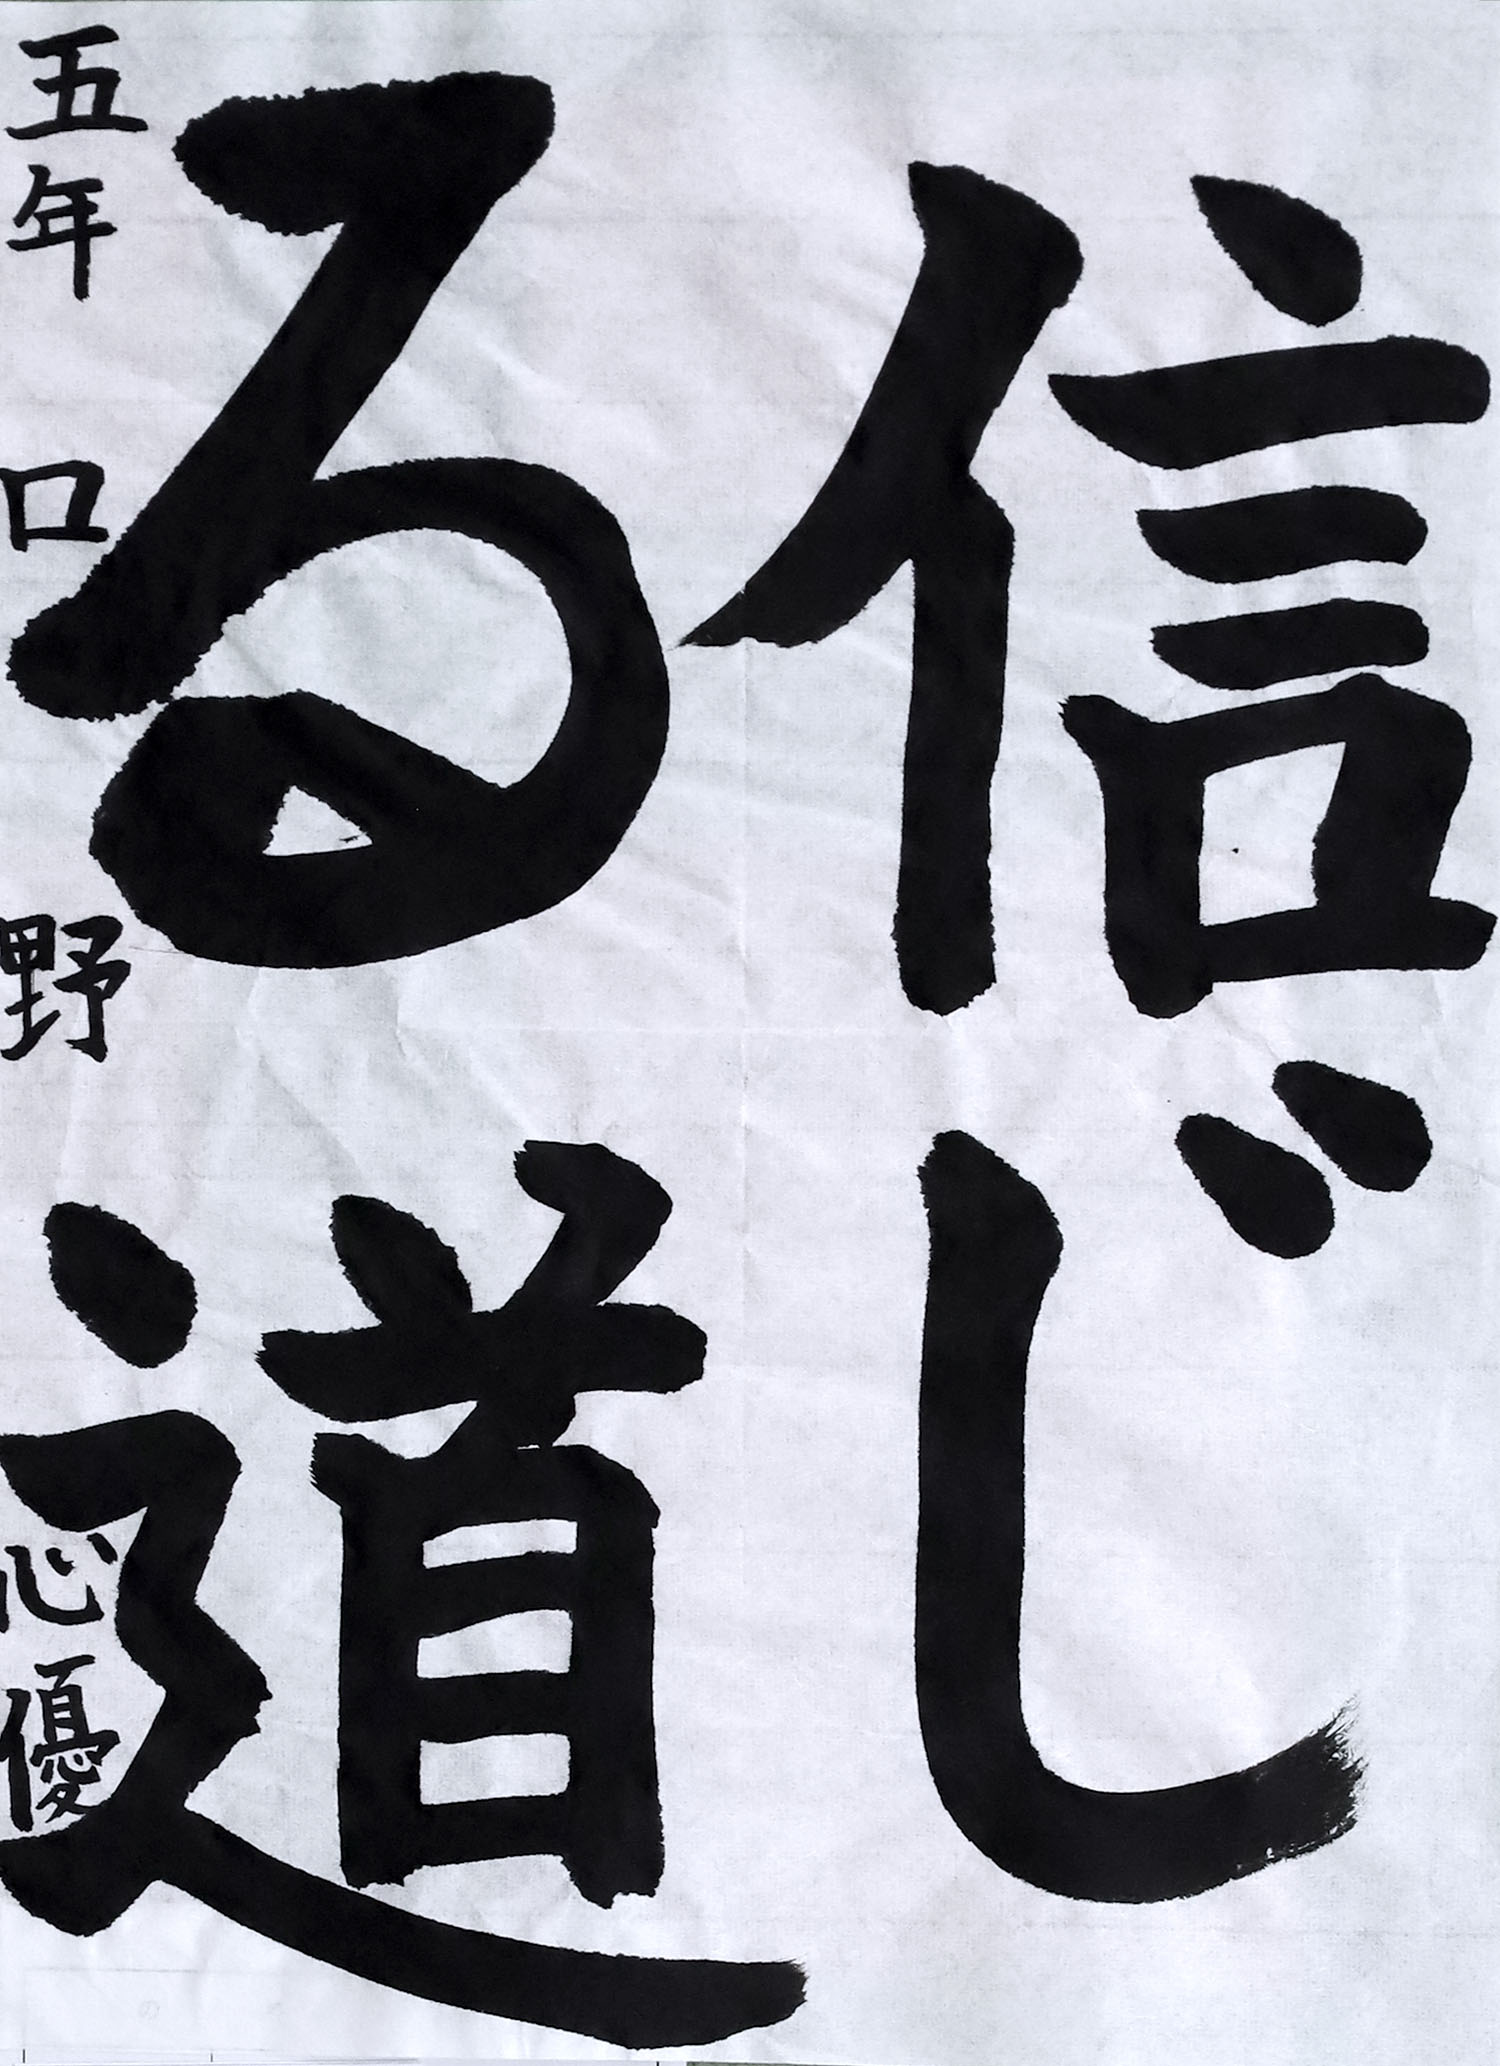 信じ
る道
五年 口野 心優